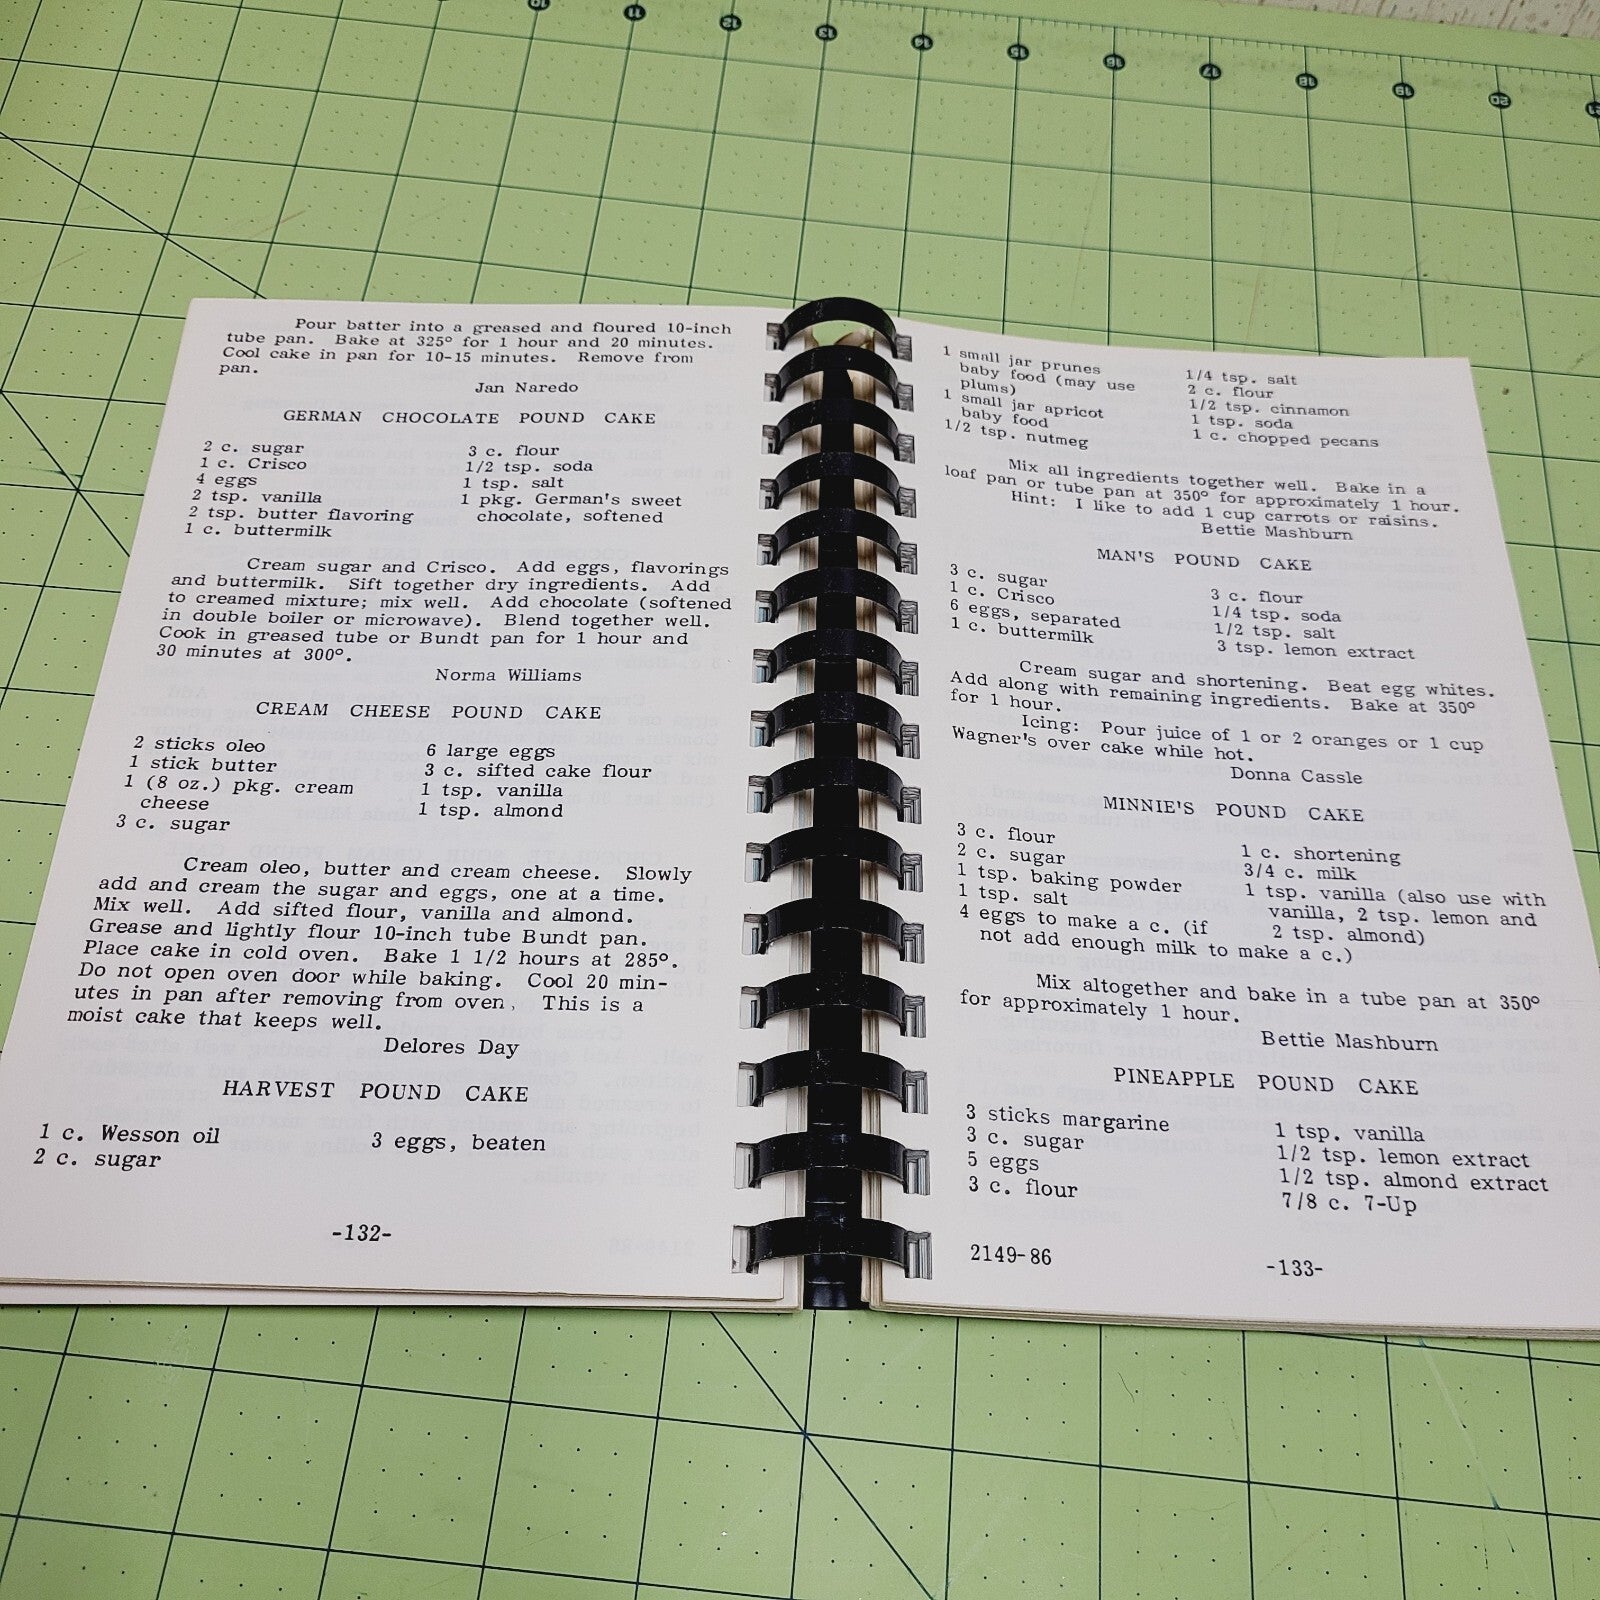 Pour batter into a greased and floured 10-inch
tube pan. Bake at 325° for 1 hour and 20 minutes.
Cool cake in pan for 10-15 minutes. Remove from
pan.
Jan Naredo
GERMAN CHOCOLATE POUND CAKE
2 c. sugar
1 c. Crisco
4 eggs
2 tsp. vanilla
2 tsp. butter flavoring
1 c. buttermilk
3 c. flour
1/2 tsp. soda
1 tsp. salt
1 pkg. German's sweet
chocolate, softened
Cream sugar and Crisco. Add eggs, flavorings
and buttermilk. Sift together dry ingredients. Add
to creamed mixture; mix well. Add chocolate (softened
in double boiler or microwave). Blend together well.
Cook in greased tube or Bundt pan for 1 hour and
30 minutes at 300°.
Norma Williams
CREAM CHEESE POUND CAKE
2 sticks oleo
1 stick butter
1 (8 oz.) pkg. cream
cheese
3 c. sugar
6 large eggs
3 c. sifted cake flour
1 tsp. vanilla
1 tsp. almond
Cream oleo, butter and cream cheese. Slowly
add and cream the sugar and eggs, one at a time.
Mix well. Add sifted flour, vanilla and almond.
Grease and lightly flour 10-inch tube Bundt pan.
Place cake in cold oven. Bake 1 1/2 hours at 285°.
Do not open oven door while baking. Cool 20 min-
utes in pan after removing from oven. This is a
moist cake that keeps well.
Delores Day
HARVEST POUND CAKE
1 c. Wesson oil
2 c. sugar
3 eggs, beaten
-132-
1 small jar prunes
baby food (may use
plums)
1 small jar apricot
baby food
1/2 tsp. nutmeg
1/4 tsp. salt
2 c. flour
1/2 tsp. cinnamon
1 tsp. soda
1 c. chopped pecans
Mix all ingredients together well. Bake in a
loaf pan or tube pan at 350° for approximately 1 hour.
Hint: I like to add 1 cup carrots or raisins.
Bettie Mashburn
MAN'S POUND CAKE
3 c. sugar
1 c. Crisco
6 eggs, separated
1 c. buttermilk
3 c. flour
1/4 tsp. soda
1/2 tsp. salt
3 tsp. lemon extract
Cream sugar and shortening. Beat egg whites.
Add along with remaining ingredients. Bake at 350°
for 1 hour.
Icing: Pour juice of 1 or 2 oranges or 1 cup
Wagner's over cake while hot.
Donna Cassle
MINNIE'S POUND CAKE
3 c. flour
2 c. sugar
1 tsp. baking powder
1 tsp. salt
4 eggs to make a c. (if
not add enough milk to make a c.)
1 c. shortening
3/4 c. milk
1 tsp. vanilla (also use with
vanilla, 2 tsp. lemon and
2 tsp. almond)
Mix altogether and bake in a tube pan at 350°
for approximately 1 hour.
Bettie Mashburn
PINEAPPLE POUND CAKE
3 sticks margarine
3 c. sugar
5 eggs
3 c. flour
1 tsp. vanilla
1/2 tsp. lemon extract
1/2 tsp. almond extract
7/8 c. 7-Up
2149-86
-133-
10 11 12 13 14 15 16 17 18 19 20 21